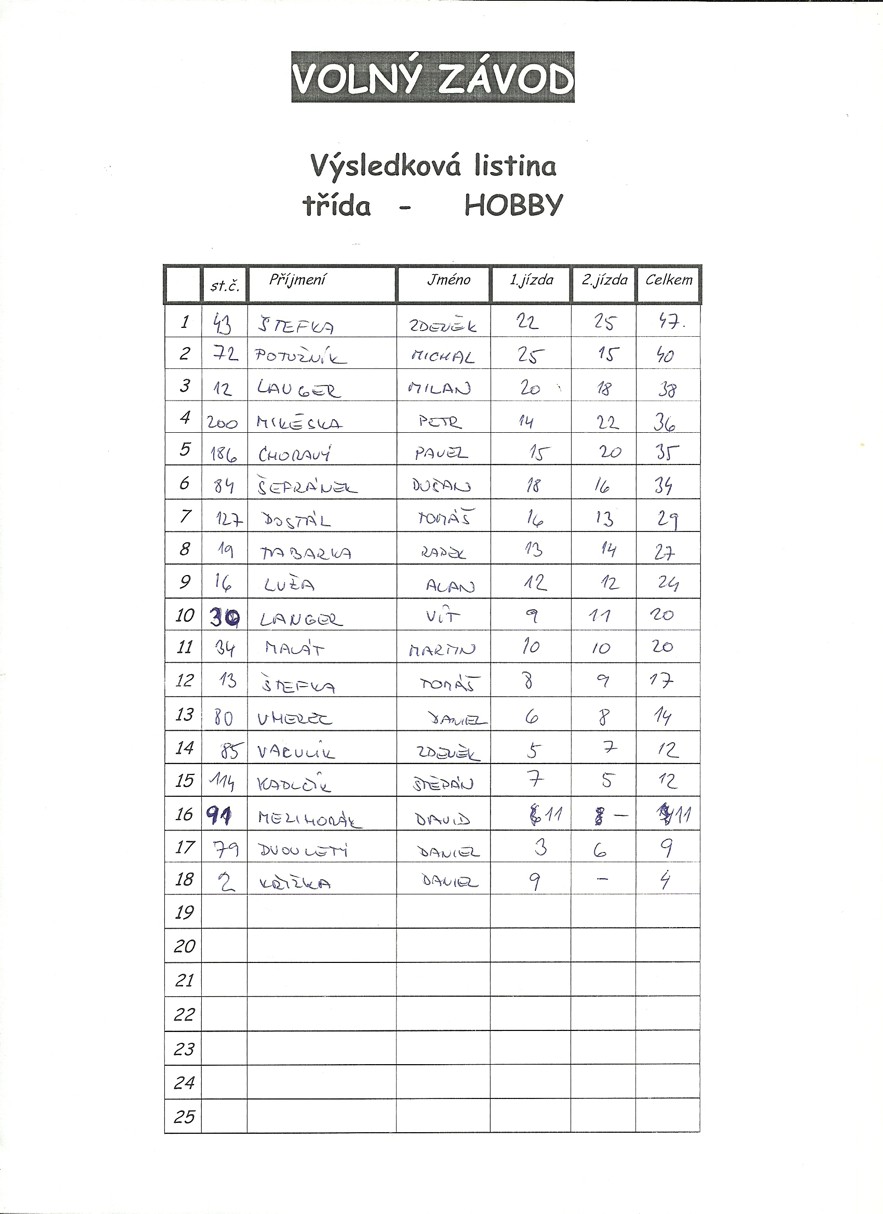 VOLNÝ ZÁVOD
Výsledková listina
třída - HOBBY
st.č. Příjmení Jméno 1.jízda 2.jízda Celkem
1 43 ŠTEFKA ZDENĚK 22 25 47.
2 72 POTUŽNÍK MICHAL 25 15 40
3 12 LAUGER MILAN 20 18 38
4 200 MIKESKA PETR 14 22 36
5 186 CHORAVÝ PAVEL 15 20 35
6 84 ŠEFRÁNEK DUŠAN 18 16 34
7 127 DOSTÁL TOMÁŠ 16 13 29
8 19 TABARKA RADEK 13 14 27
9 16 LUŽA ALAN 12 12 24
10 30 LANGER VÍT 9 11 20
11 34 MALÁT MARTIN 10 10 20
12 13 ŠTEFKA TOMÁŠ 8 9 17
13 80 DANIEL 6 8 14
14 85 VACULÍK ZDENĚK 5 7 12
15 114 KADLČÍK ŠTĚPÁN 7 5 12
16 91 MEZIHORÁK DAVID 11 - 11
17 79 DVOULETÝ DANIEL 3 6 9
18 2 KŘIŽKA DANIEL 9 - 4
19
20
21
22
23
24
25